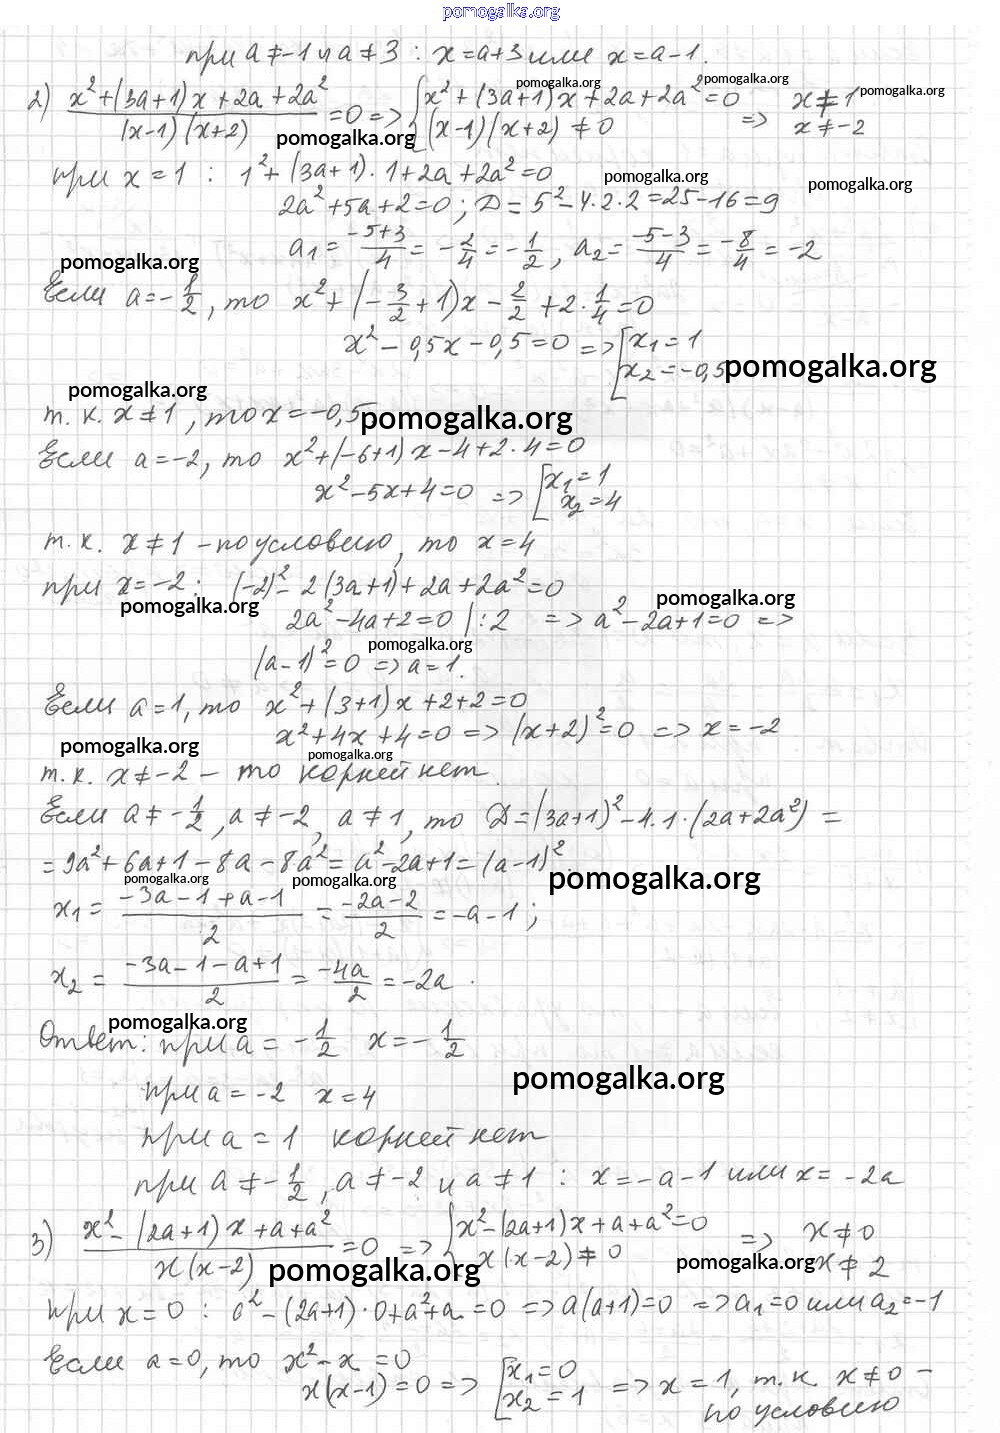 pomogalka.org
при a ≠ -1 и a ≠ 3 : x = a+3 или x = a-1.
2) (x² + (3a+1)x + 2a + 2a²) / ((x-1)(x+2)) = 0 => { x² + (3a+1)x + 2a + 2a² = 0 ; (x-1)(x+2) ≠ 0 => x ≠ 1 x ≠ -2
pomogalka.org pomogalka.org pomogalka.org
pomogalka.org
при x = 1 : 1² + (3a+1)·1 + 2a + 2a² = 0
pomogalka.org pomogalka.org
2a² + 5a + 2 = 0 ; D = 5² - 4·2·2 = 25 - 16 = 9
a₁ = (-5+3)/4 = -2/4 = -1/2 , a₂ = (-5-3)/4 = -8/4 = -2
pomogalka.org
Если a = -1/2, то x² + (-3/2 + 1)x - 2/2 + 2·1/4 = 0
x² - 0,5x - 0,5 = 0 => [ x₁ = 1 ; x₂ = -0,5
pomogalka.org
pomogalka.org
т.к. x ≠ 1, то x = -0,5
pomogalka.org
Если a = -2, то x² + (-6+1)x - 4 + 2·4 = 0
x² - 5x + 4 = 0 => [ x₁ = 1 ; x₂ = 4
т.к. x ≠ 1 - по условию, то x = 4
при x = -2 : (-2)² - 2(3a+1) + 2a + 2a² = 0
pomogalka.org pomogalka.org
2a² - 4a + 2 = 0 | : 2 => a² - 2a + 1 = 0 =>
pomogalka.org
(a-1)² = 0 => a = 1.
Если a = 1, то x² + (3+1)x + 2 + 2 = 0
x² + 4x + 4 = 0 => (x+2)² = 0 => x = -2
pomogalka.org pomogalka.org
т.к. x ≠ -2 - то корней нет.
Если a ≠ -1/2, a ≠ -2, a ≠ 1, то D = (3a+1)² - 4·1·(2a+2a²) =
= 9a² + 6a + 1 - 8a - 8a² = a² - 2a + 1 = (a-1)².
pomogalka.org pomogalka.org pomogalka.org
x₁ = (-3a-1+a-1)/2 = (-2a-2)/2 = -a-1 ;
x₂ = (-3a-1-a+1)/2 = -4a/2 = -2a .
pomogalka.org
Ответ: при a = -1/2 x = -1/2
pomogalka.org
при a = -2 x = 4
при a = 1 корней нет
при a ≠ -1/2, a ≠ -2 и a ≠ 1 : x = -a-1 или x = -2a
3) (x² - (2a+1)x + a + a²) / (x(x-2)) = 0 => { x² - (2a+1)x + a + a² = 0 ; x(x-2) ≠ 0 => x ≠ 0 x ≠ 2
pomogalka.org pomogalka.org
при x = 0 : 0² - (2a+1)·0 + a² + a = 0 => a(a+1) = 0 => a₁ = 0 или a₂ = -1
Если a = 0, то x² - x = 0
x(x-1) = 0 => [ x₁ = 0 ; x₂ = 1 => x = 1, т.к. x ≠ 0 -
по условию